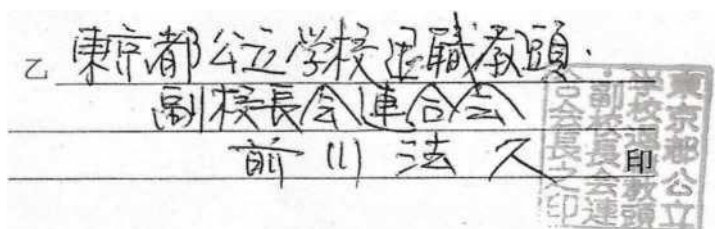 乙 東京都公立学校退職教頭・
副校長会連合会
前川 法久 印
東京都公立
学校退職教頭
・副校長会連
合会長之印